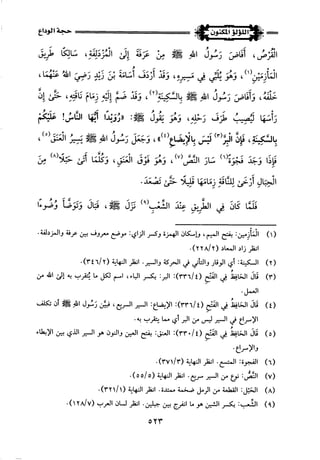 اللؤلؤ المكنون
حجة الوداع
القُرْصُ، أَفَاضَ رَسُولُ اللهِ ﷺ مِنْ عَرَفَةَ إِلَى المُزْدَلِفَةِ، سَالِكًا طَرِيقَ
المَأْزِمَيْنِ(١)، وَهُوَ يُلَبِّي فِي مَسِيرِهِ، وَقَدْ أَرْدَفَ أُسَامَةَ بْنَ زَيْدٍ رَضِيَ اللهُ عَنْهُمَا،
خَلْفَهُ، وَأَفَاضَ رَسُولُ اللهِ ﷺ بِالسَّكِينَةِ(٢)، وَقَدْ ضَمَّ إِلَيْهِ زِمَامَ نَاقَتِهِ، حَتَّى إِنَّ
رَأْسَهَا لَيُصِيبُ طَرَفَ رَحْلِهِ، وَهُوَ يَقُولُ ﷺ: «رُوَيْدًا أَيُّهَا النَّاسُ! عَلَيْكُمْ
بِالسَّكِينَةِ، فَإِنَّ البِرَّ(٣) لَيْسَ بِالإِيضَاعِ(٤)»، وَجَعَلَ رَسُولُ اللهِ ﷺ يَسِيرُ العَنَقَ(٥)،
فَإِذَا وَجَدَ فَجْوَةً(٦) سَارَ النَّصَّ(٧)، وَهُوَ فَوْقَ العَنَقِ، وَكُلَّمَا أَتَى حَبْلًا(٨) مِنَ
الحِبَالِ أَرْخَى لِلنَّاقَةِ زِمَامَهَا قَلِيلًا حَتَّى تَصْعَدَ.
فَلَمَّا كَانَ فِي الطَّرِيقِ عِنْدَ الشِّعْبِ(٩) نَزَلَ ﷺ، فَبَالَ وَتَوَضَّأَ وُضُوءًا
(١) المأزمين: بفتح الميم، وإسكان الهمزة وكسر الزاي: موضع معروف بين عرفة والمزدلفة.
انظر زاد المعاد (٢٢٨/٢).
(٢) السكينة: أي الوقار والتأني في الحركة والسير. انظر النهاية (٣٤٦/٢).
(٣) قال الحَافِظُ فِي الفَتْحِ (٣٣٦/٤): البر: بكسر الباء، اسم لكل ما يُتقرب به إلى الله من
العمل.
(٤) قال الحَافِظُ فِي الفَتْحِ (٣٣٦/٤): الإيضاع: السير السريع، فبيَّن رَسُولُ اللهِ ﷺ أن تكلف
الإسراع في السير ليس من البر أي مما يتقرب به.
(٥) قال الحَافِظُ فِي الفَتْحِ (٣٣٠/٤): العنق: بفتح العين والنون هو السير الذي بين الإبطاء
والإسراع.
(٦) الفجوة: المتسع. انظر النهاية (٣٧١/٣).
(٧) النَّصُّ: نوع من السير سريع. انظر النهاية (٥٥/٥).
(٨) الحَبْل: القطعة من الرمل ضخمة ممتدة. انظر النهاية (٣٢١/١).
(٩) الشِّعب: بكسر الشين هو ما انفرج بين جبلين. انظر لسان العرب (١٢٨/٧).
٥٢٣